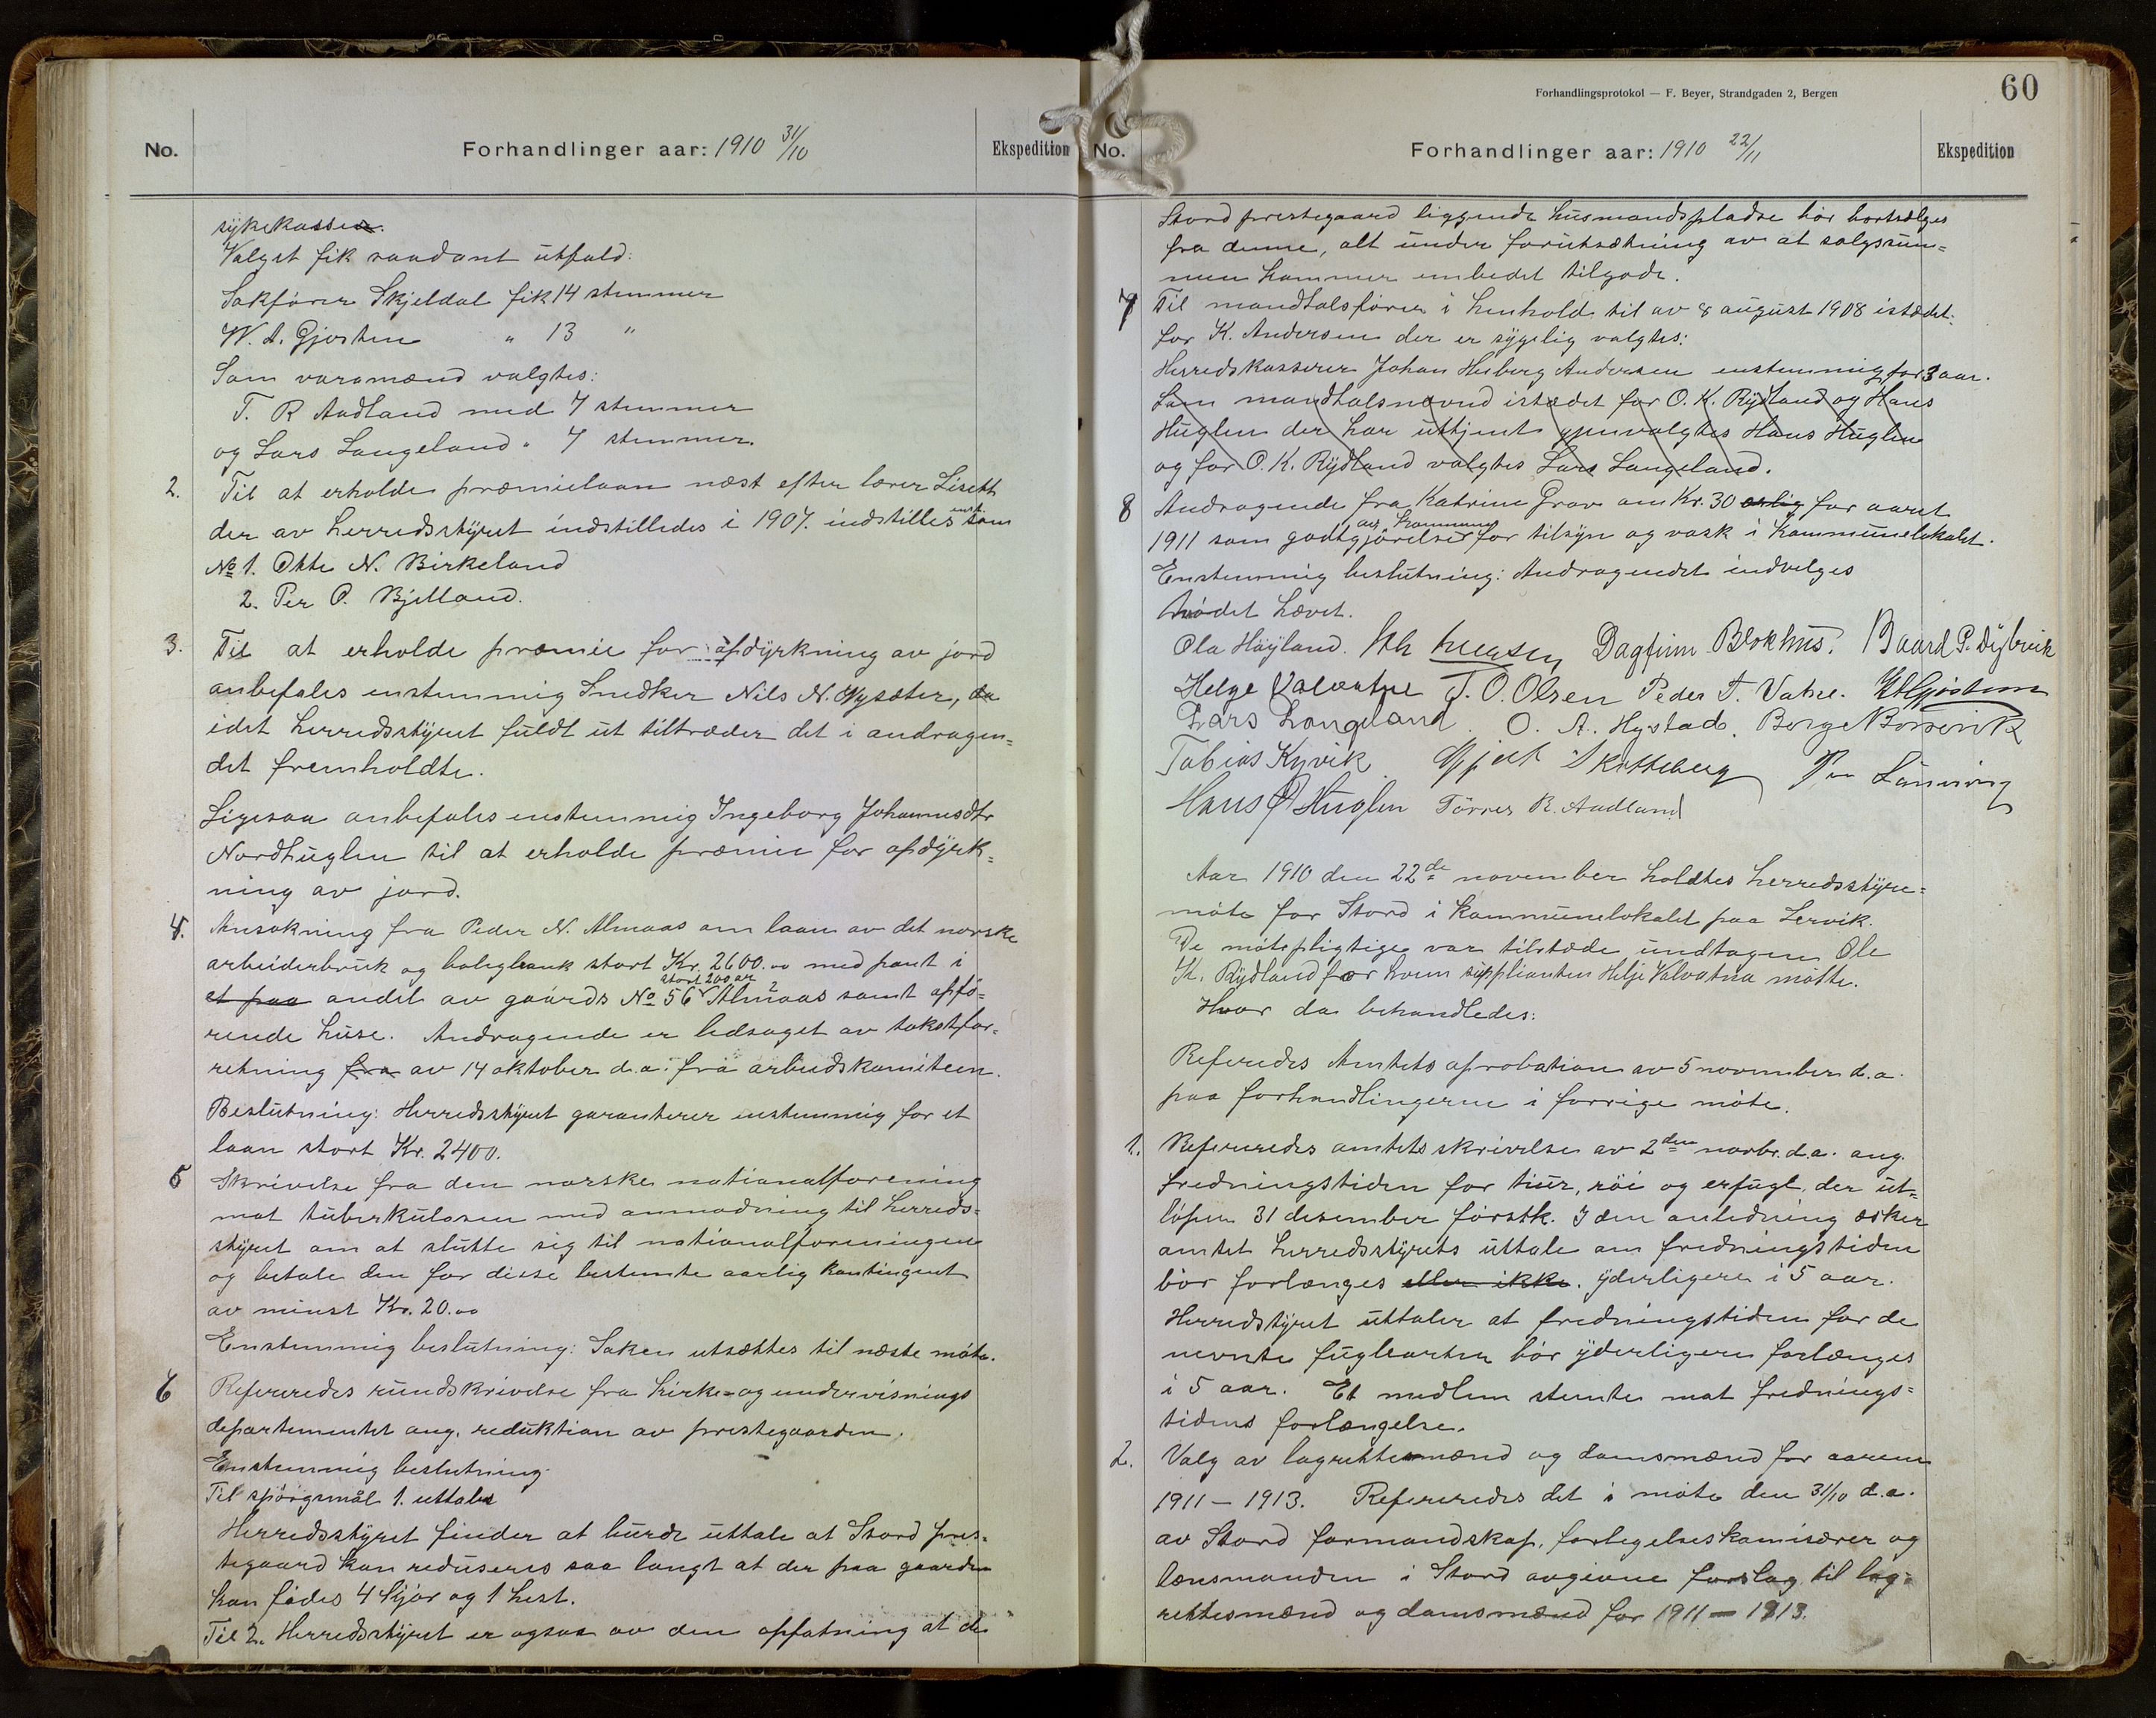 No.
Forhandlinger aar: 1910 31/10
Ekspedition
sykekassen.
Valget fik saadant utfald:
Sakförer Skjeldal fik 14 stemmer
W. A. Gjøsten " 13 "
Som varamænd valgtes:
T. R Aadland med 7 stemmer
og Lars Langeland " 7 stemmer.
2. Til at erholde præmielaan næst efter lærer Lisett
der av herredsstyret indstilledes i 1907. indstilles enst. som
No 1. Otto N. Birkeland
2. Per P. Bjelland.
3. Til at erholde præmie for opdyrkning av jord
anbefales enstemmig Snedker Nils N. Nysæter, da
idet herredsstyret fuldt ut tiltræder det i andragen=
det fremholdte.
Ligesaa anbefales enstemmig Ingeborg Johannesdtr
Nordhuglen til at erholde præmie for opdyrk=
ning av jord.
4. Ansøkning fra Peder N. Almaas om laan av det norske
arbeiderbruk og boligbank stort Kr. 2600.00 med pant i
et paa andel av gaards No 56 stort 200 ar 2 Almaas samt opfö=
rende huse. Andragende er ledsaget av takstfor=
retning fra av 14 oktober d.a. fra arbeidskomiteen.
Beslutning: Herredsstyret garanterer enstemmig for et
laan stort Kr. 2400.
5 Skrivelse fra den norske nationalforening
mot tuberkulosen med anmodning til herreds=
styret om at slutte sig til nationalforeningen
og betale den for disse bestemte aarlig kontingent
av minst Kr. 20.00
Enstemmig beslutning: Saken utsættes til næste möte.
6 Refereredes rundskrivelse fra kirke- og undervisnings
departementet ang. reduktion av prestegaarden.
Enstemmig beslutning:
Til spörgsmål 1. uttales
Herredsstyret finder at burde uttale at Stord pres=
tegaard kan reduseres saa langt at der paa gaarden
kan födes 4 kjör og 1 hest.
Til 2. Herredsstyret er ogsaa av den opfatning at de
Forhandlingsprotokol — F. Beyer, Strandgaden 2, Bergen
60
No.
Forhandlinger aar: 1910 22/11
Ekspedition
Stord prestegaard liggende husmandspladse bör bortsælges
fra denne, alt under forutsætning av at salgssum=
men kommer embedet tilgode.
7 Til mandtalsförer i henhold til av 8 august 1908 istædet
for K. Andersen der er sygelig valgtes:
Herredskasserer Johan Heiberg Andersen enstemmig for 3 aar.
Som mandtalsnævnd istædet for O. K. Rydland og Hans
Huglen der har uttjent gjenvalgtes Hans Huglen
og for O. K. Rydland valgtes Lars Langeland.
8 Andragende fra Katrine Grov om Kr. 30 aarlig for aaret
1911 som godtgjörelse av kommunen for tilsyn og vask i kommunelokalet.
Enstemmig beslutning: Andragendet indvilges
Mödet hævet.
Ola Høyland. Dagfinn Blokhus. Baard P. Dybvik
Helge Valvatne J. O. Olsen Peder T. Vatne. WAGjøsteen
Lars Langeland. O. A. Hystad. Børge N Børsvik
Tobias Kyvik Gjert Skotteberg Per Lönning
Hans O Huglen Törres R. Aadland
Aar 1910 den 22de november holdtes herredsstyre=
möte for Stord i kommunelokalet paa Lervik.
De mötepligtige var tilstæde undtagen Ole
K. Rydland for hvem suppleanten Helje Valvatna mötte.
Hvor da behandledes:
Referedes Amtets aprobation av 5 november d.a.
paa forhandlingerne i forrige möte.
1. Refereredes amtets skrivelse av 2den novbr. d.a. ang.
fredningstiden for tiur, röi og orfugl, der ut=
löper 31 desember förstk. I den anledning ösker
amtet herredsstyrets uttale om fredningstiden
bör forlænges eller ikke. yderligere i 5 aar.
Herredstyret uttaler at fredningstiden for de
nevnte fuglearter bör yderligere forlænges
i 5 aar. Et medlem stemte mot frednings=
tidens forlængelse.
2. Valg av lagrettemænd og domsmænd for aarene
1911 — 1913. Refereredes det i möte den 31/10 d.a.
av Stord formandskap, forlegelseskomisærer og
lensmanden i Stord avgivne forslag til lag=
rettesmænd og domsmænd for 1911 — 1913.